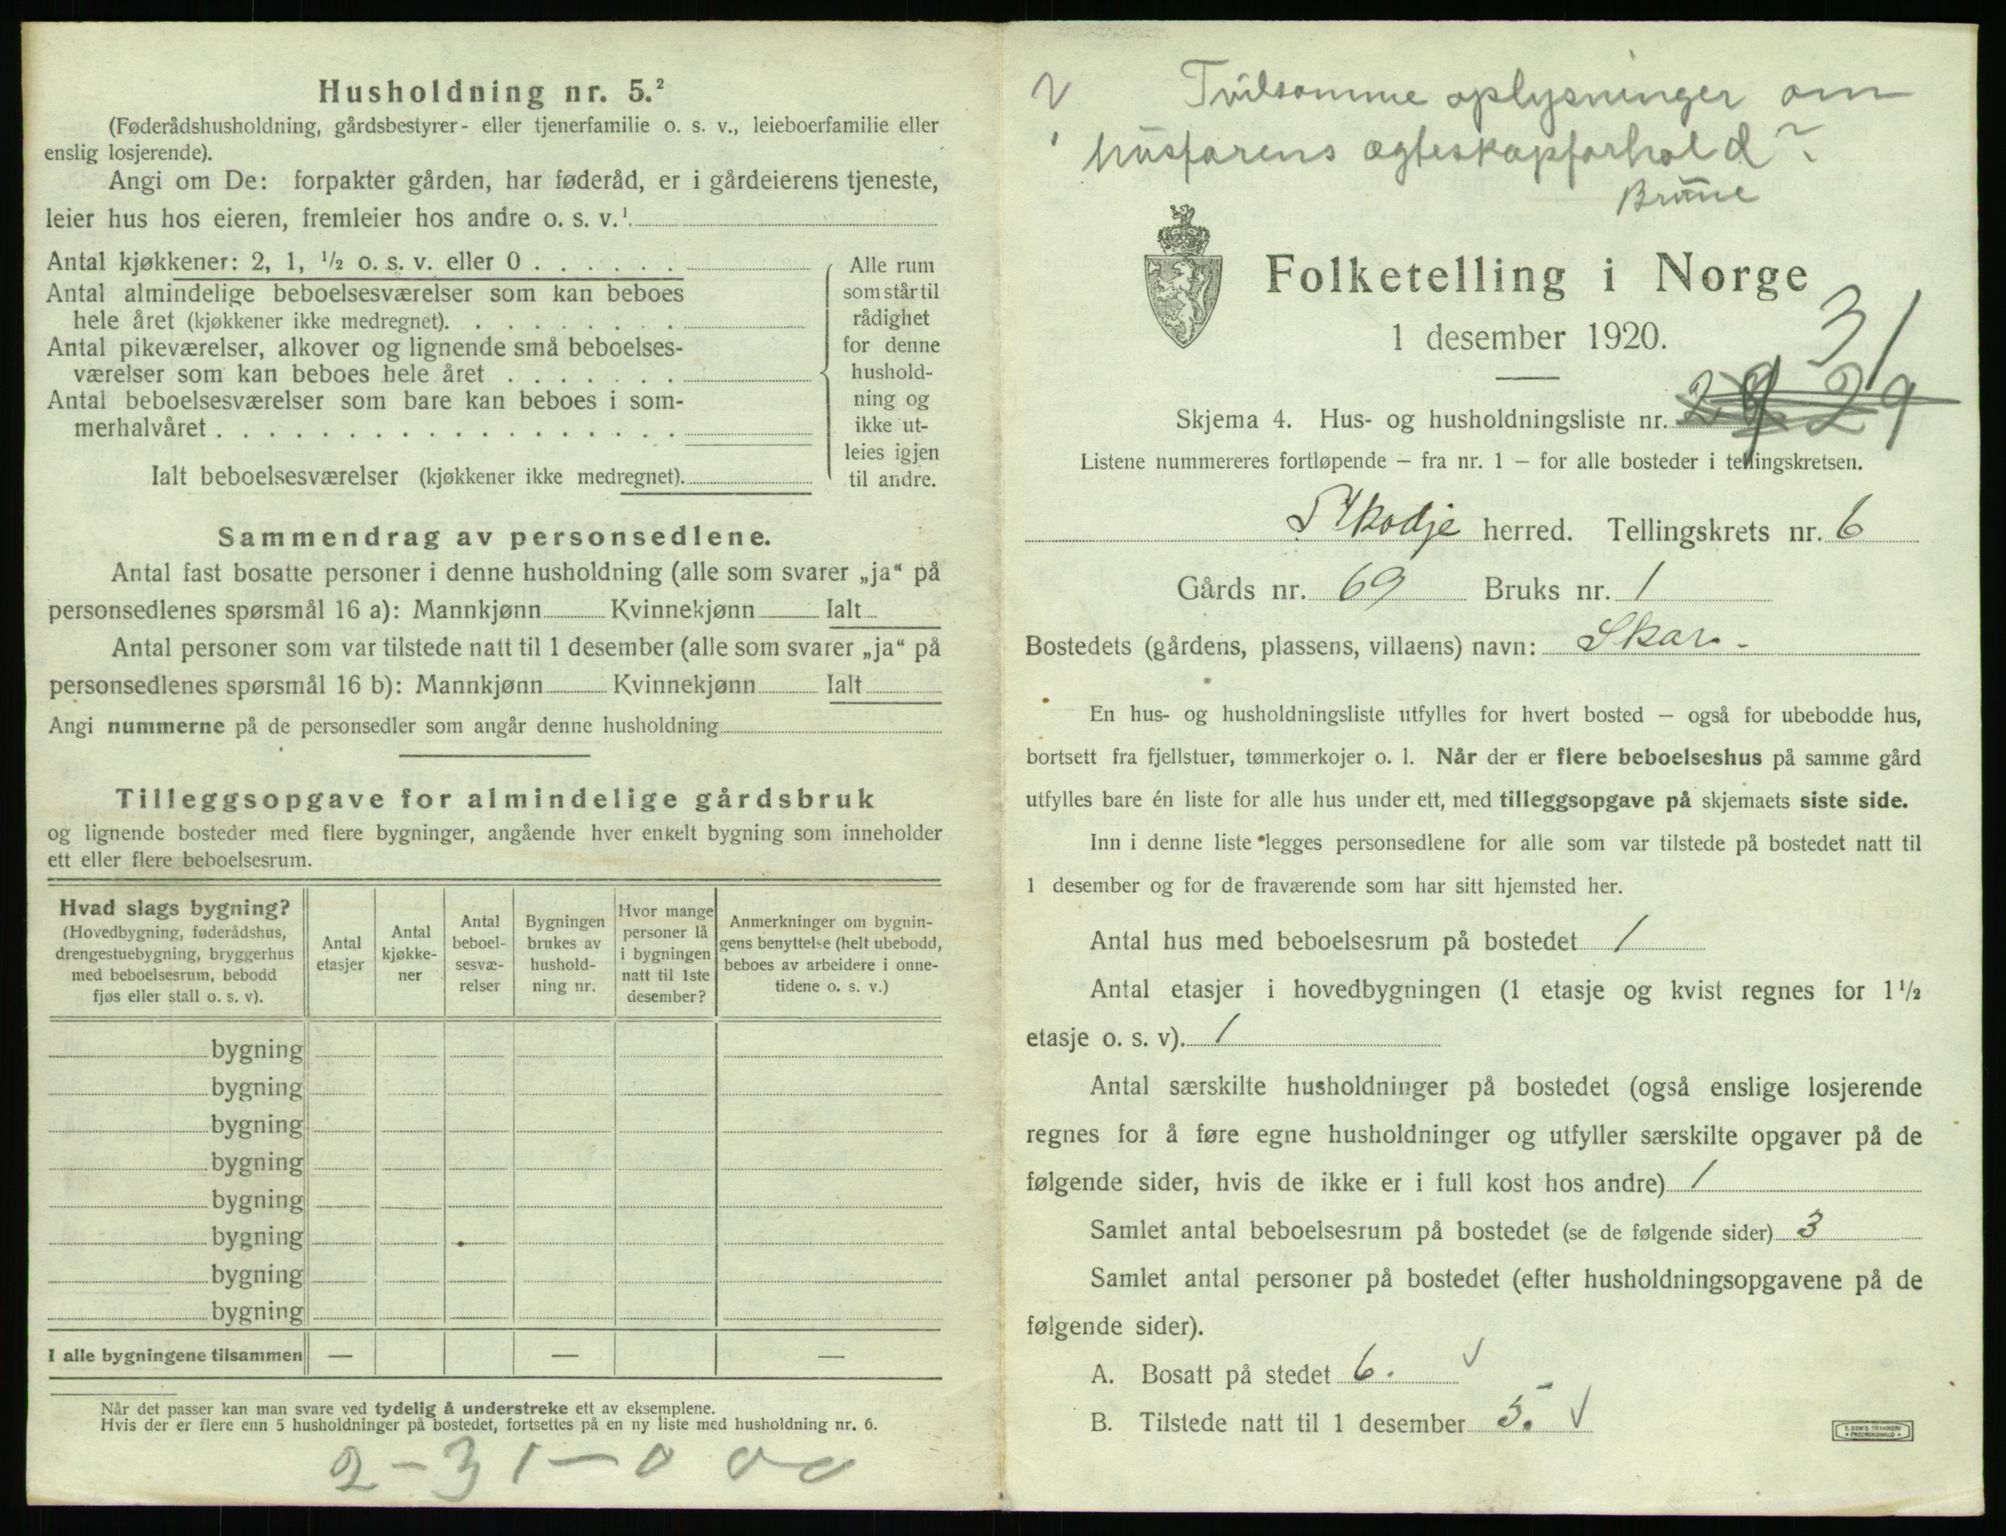 Husholdning nr. 5.²
(Føderådshusholdning, gårdsbestyrer- eller tjenerfamilie o. s. v., leieboerfamilie eller
enslig losjerende).
Angi om De: forpakter gården, har føderåd, er i gårdeierens tjeneste,
leier hus hos eieren, fremleier hos andre o. s. v.¹
Antal kjøkkener: 2, 1, ½ o. s. v. eller 0 . . . . . .
Antal almindelige beboelsesværelser som kan beboes
hele året (kjøkkener ikke medregnet). . . . . . . . .
Antal pikeværelser, alkover og lignende små beboelses-
værelser som kan beboes hele året . . . . . . .
Antal beboelsesværelser som bare kan beboes i som-
merhalvåret . . . . . . . . . . . . . . . . . .
Ialt beboelsesværelser (kjøkkener ikke medregnet).
Alle rum
som står til
rådighet
for denne
hushold-
ning og
ikke ut-
leies igjen
til andre.
Sammendrag av personsedlene.
Antal fast bosatte personer i denne husholdning (alle som svarer „ja“ på
personsedlenes spørsmål 16 a): Mannkjønn Kvinnekjønn Ialt
Antal personer som var tilstede natt til 1 desember (alle som svarer „ja“ på
personsedlenes spørsmål 16 b): Mannkjønn Kvinnekjønn Ialt
Angi nummerne på de personsedler som angår denne husholdning
Tilleggsopgave for almindelige gårdsbruk
og lignende bosteder med flere bygninger, angående hver enkelt bygning som inneholder
ett eller flere beboelsesrum.
Hvad slags bygning?
(Hovedbygning, føderådshus,
drengestuebygning, bryggerhus
med beboelsesrum, bebodd
fjøs eller stall o. s. v).
Antal
etasjer
Antal
kjøkke-
ner
Antal
beboel-
sesvæ-
relser
Bygningen
brukes av
hushold-
ning nr.
Hvor mange
personer lå
i bygningen
natt til 1ste
desember?
Anmerkninger om bygnin-
gens benyttelse (helt ubebodd,
beboes av arbeidere i onne-
tidene o. s. v.)
bygning
bygning
bygning
bygning
bygning
bygning
bygning
bygning
I alle bygningene tilsammen — — —
Når det passer kan man svare ved tydelig å understreke ett av eksemplene.
Hvis der er flere enn 5 husholdninger på bostedet, fortsettes på en ny liste med husholdning nr. 6.
2 – 31 – 0 0 0
Tvilsomme oplysninger om
husfarens ægteskapforhold?
Folketelling i Norge
1 desember 1920.
31
Skjema 4. Hus- og husholdningsliste nr. 29
Listene nummereres fortløpende – fra nr. 1 – for alle bosteder i tellingskretsen.
Skodje herred. Tellingskrets nr. 6
Gårds nr. 69 Bruks nr. 1
Bostedets (gårdens, plassens, villaens) navn: Skar.
En hus- og husholdningsliste utfylles for hvert bosted – også for ubebodde hus,
bortsett fra fjellstuer, tømmerkojer o. l. Når der er flere beboelseshus på samme gård
utfylles bare én liste for alle hus under ett, med tilleggsopgave på skjemaets siste side.
Inn i denne liste legges personsedlene for alle som var tilstede på bostedet natt til
1 desember og for de fraværende som har sitt hjemsted her.
Antal hus med beboelsesrum på bostedet 1
Antal etasjer i hovedbygningen (1 etasje og kvist regnes for 1½
etasje o. s. v). 1
Antal særskilte husholdninger på bostedet (også enslige losjerende
regnes for å føre egne husholdninger og utfyller særskilte opgaver på de
følgende sider, hvis de ikke er i full kost hos andre) 1
Samlet antal beboelsesrum på bostedet (se de følgende sider) 3
Samlet antal personer på bostedet (efter husholdningsopgavene på de
følgende sider).
A. Bosatt på stedet 6. √
B. Tilstede natt til 1 desember 5. √